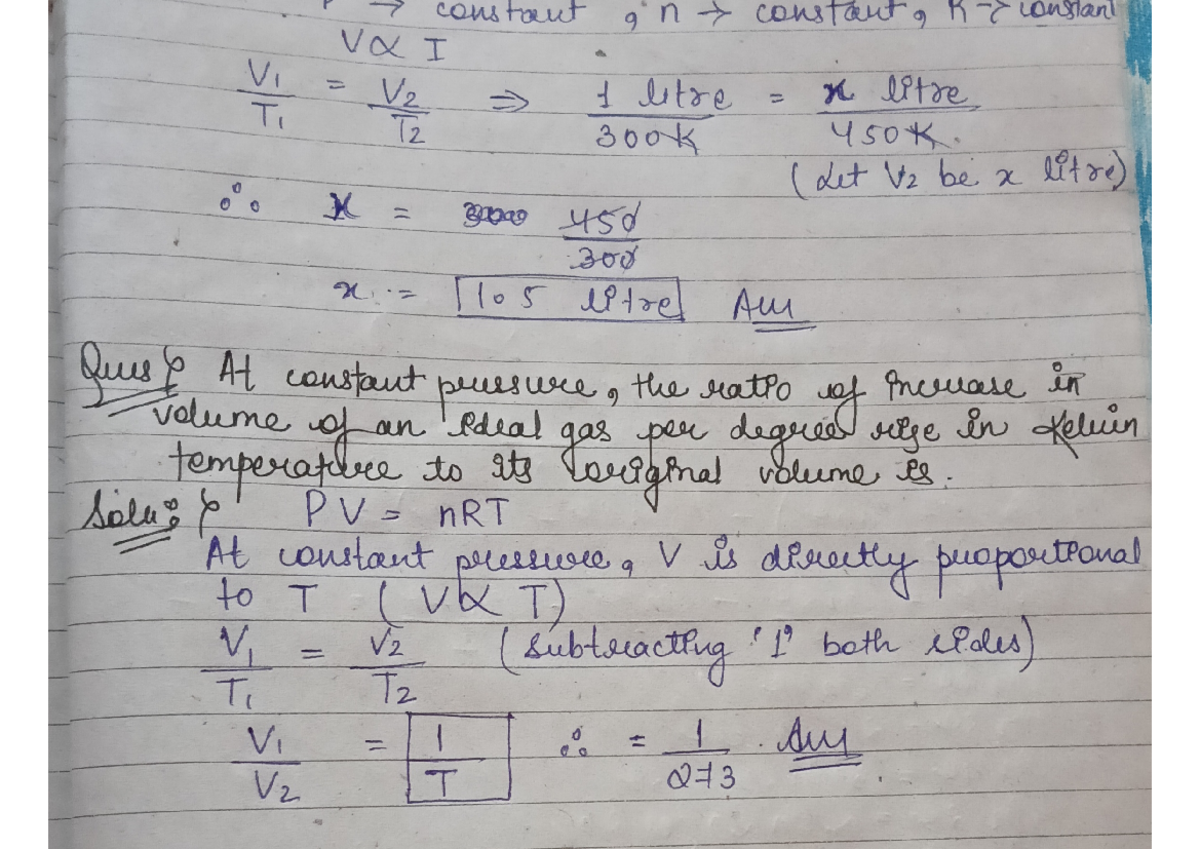 P → constant , n → constant, R → constant
V ∝ I
V1/T1 = V2/T2 ⇒ 1 litre/300K = x litre/450K.
(Let V2 be x litre)
∴ x = 450/300
x = 1.5 litre Ans
Ques: At constant pressure, the ratio of increase in
volume of an ideal gas per degree rise in Kelvin
temperature to its original volume is.
Solu: PV = nRT
At constant pressure, V is directly proportional
to T (V ∝ T)
V1/T1 = V2/T2 (Subtracting '1' both sides)
V1/V2 = 1/T ∴ = 1/273 . Ans